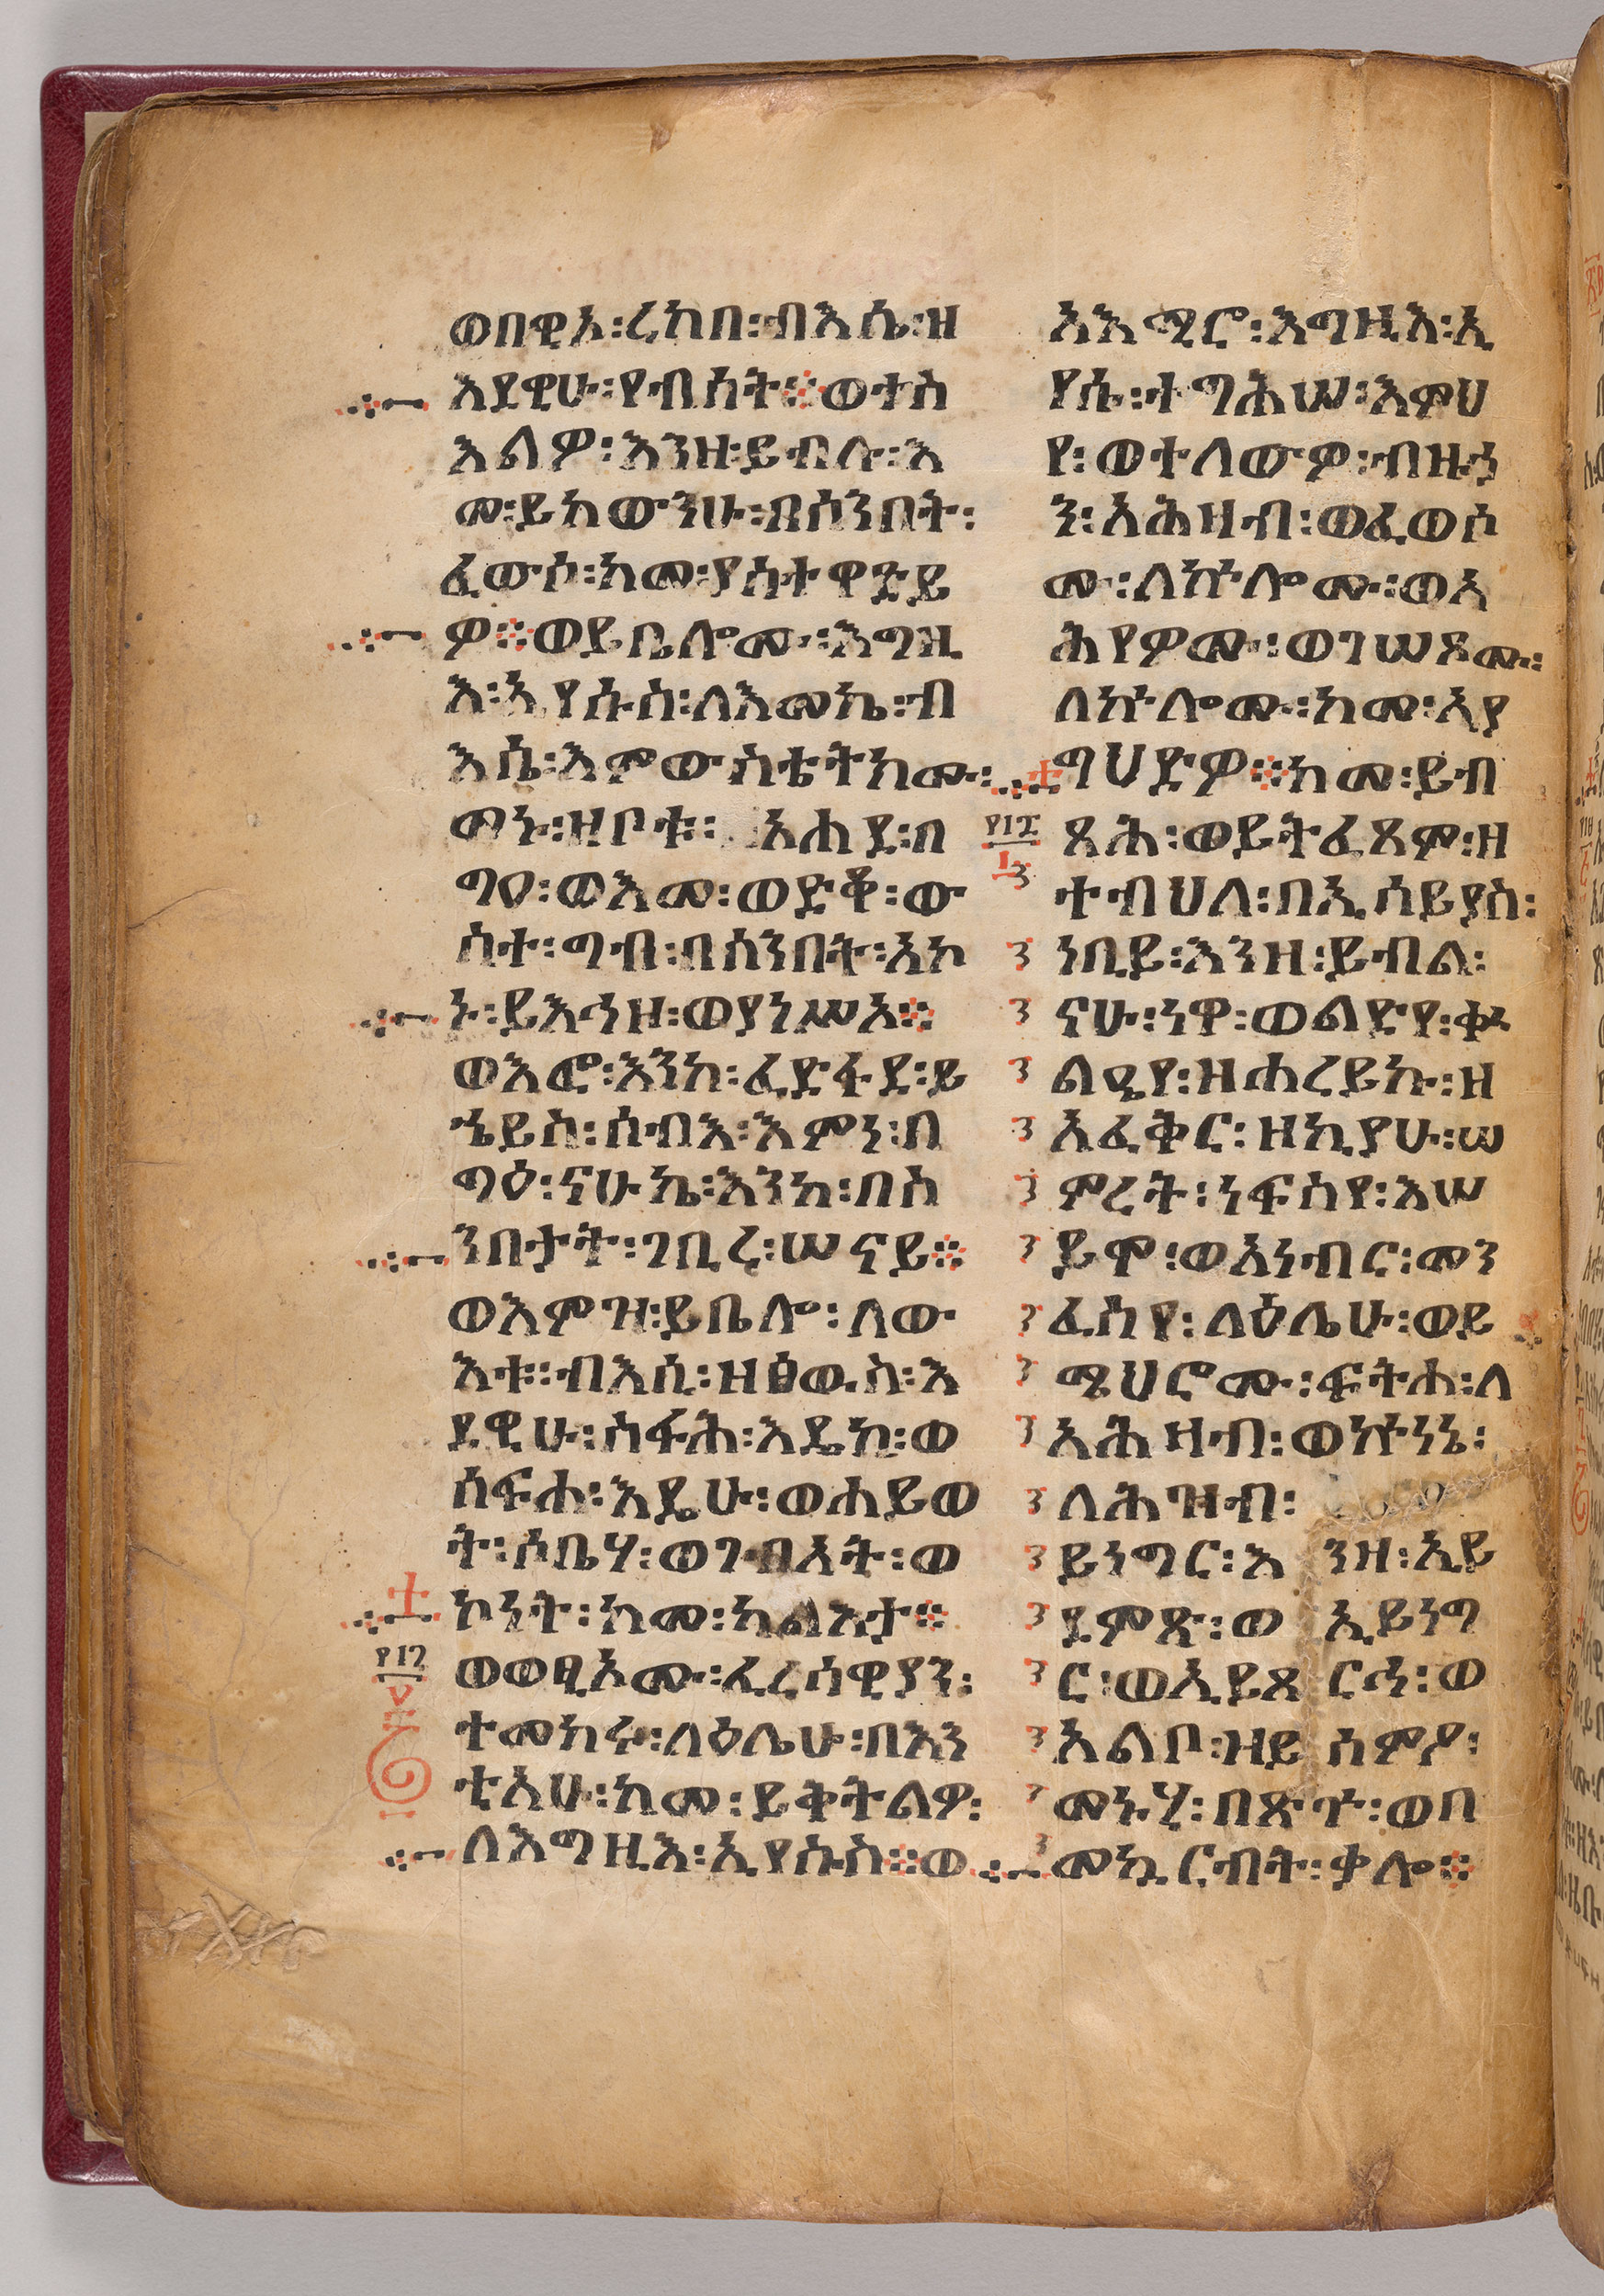 ወበዊኦ፡ረከበ፡ብእሴ፡ዘ
እደዊሁ፡የብሰት፨ወተስ
እልዎ፡እንዘ፡ይብሉ፡እ
መ፡ይከውንሁ፡በሰንበት፡
ፈውሶ፡ከመ፡ያስተዋድይ
ዎ፨ወይቤሎሙ፡እግዚ
እ፡ኢየሱስ፡ለእመኬ፡ብ
እሴ፡እምውስቴትክሙ፡
መኑ፡ዝቦቱ፡አሐደ፡በ
ግዐ፡ወእመ፡ወድቆ፡ው
ስተ፡ግብ፡በሰንበት፡አኮ
ኑ፡ይእኅዝ፡ወያነሥኦ፨
ወእፎ፡እንከ፡ፈድፋደ፡ይ
ኄይስ፡ሰብእ፡እምነ፡በ
ግዕ፡ናሁኬ፡እንከ፡በስ
ንበታት፡ገቢረ፡ሠናይ፨
ወእምዝ፡ይቤሎ፡ለው
እቱ፡ብእሲ፡ዘፅውስ፡እ
ደዊሁ፡ስፋሕ፡እዴከ፡ወ
ሰፍሐ፡እዴሁ፡ወሐይወ
ት፡ሶቤሃ፡ወገብአት፡ወ
ኮነት፡ከመ፡ካልእታ፨
፻፲፯
ወወፂኦሙ፡ፈረሳዊያን፡
ተመክሩ፡ለዕሌሁ፡በእን
ቲአሁ፡ከመ፡ይቅትልዎ፡
ለእግዚእ፡ኢየሱስ፨ወ
አእሚሮ፡እግዚእ፡ኢ
የሱ፡ተግሕሠ፡እምህ
የ፡ወተለውዎ፡ብዙኃ
ን፡አሕዛብ፡ወፈወሶ
ሙ፡ለኵሎሙ፡ወአ
ሕየዎሙ፡ወገሠጾሙ፡
ለኵሎሙ፡ከመ፡ኢያ
ግህድዎ፨ከመ፡ይብ
፻፲፰
ጻሕ፡ወይትፈጸም፡ዘ
ተብህለ፡በኢሳይያስ፡
ነቢይ፡እንዘ፡ይብል፡
ናሁ፡ነዋ፡ወልድየ፡ቍ
ልዔየ፡ዘሐረይኩ፡ዘ
አፈቅር፡ዘኪያሁ፡ሠ
ምረት፡ነፍስየ፡እሠ
ይሞ፡ወአነብር፡መን
ፈስየ፡ላዕሌሁ፡ወይ
ሜህሮሙ፡ፍትሐ፡ለ
አሕዛብ፡ወኵነኔ፡
ለሕዝብ፡
ይነግር፡እንዘ፡ኢይ
ደምጽ፡ወኢይነግ
ር፡ወኢይጸርሕ፡ወ
አልቦ፡ዘይሰምዖ፡
መኑሂ፡በጽጐ፡ወበ
መኳርብት፡ቃሎ፨